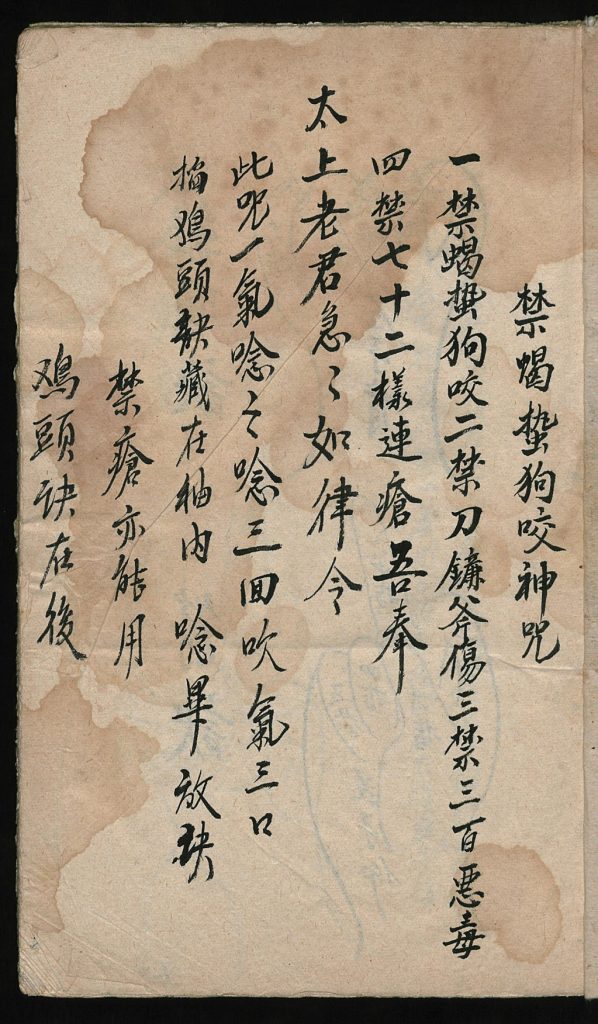 禁蝎蜇狗咬神咒
一禁蝎蜇狗咬二禁刀鐮斧傷三禁三百惡毒
四禁七十二樣連瘡吾奉
太上老君急〻如律令
此咒一氣唸〻唸三回吹氣三口
掐鳮頭訣藏在袖内 唸畢放訣
禁瘡亦能用
鳮頭訣在後